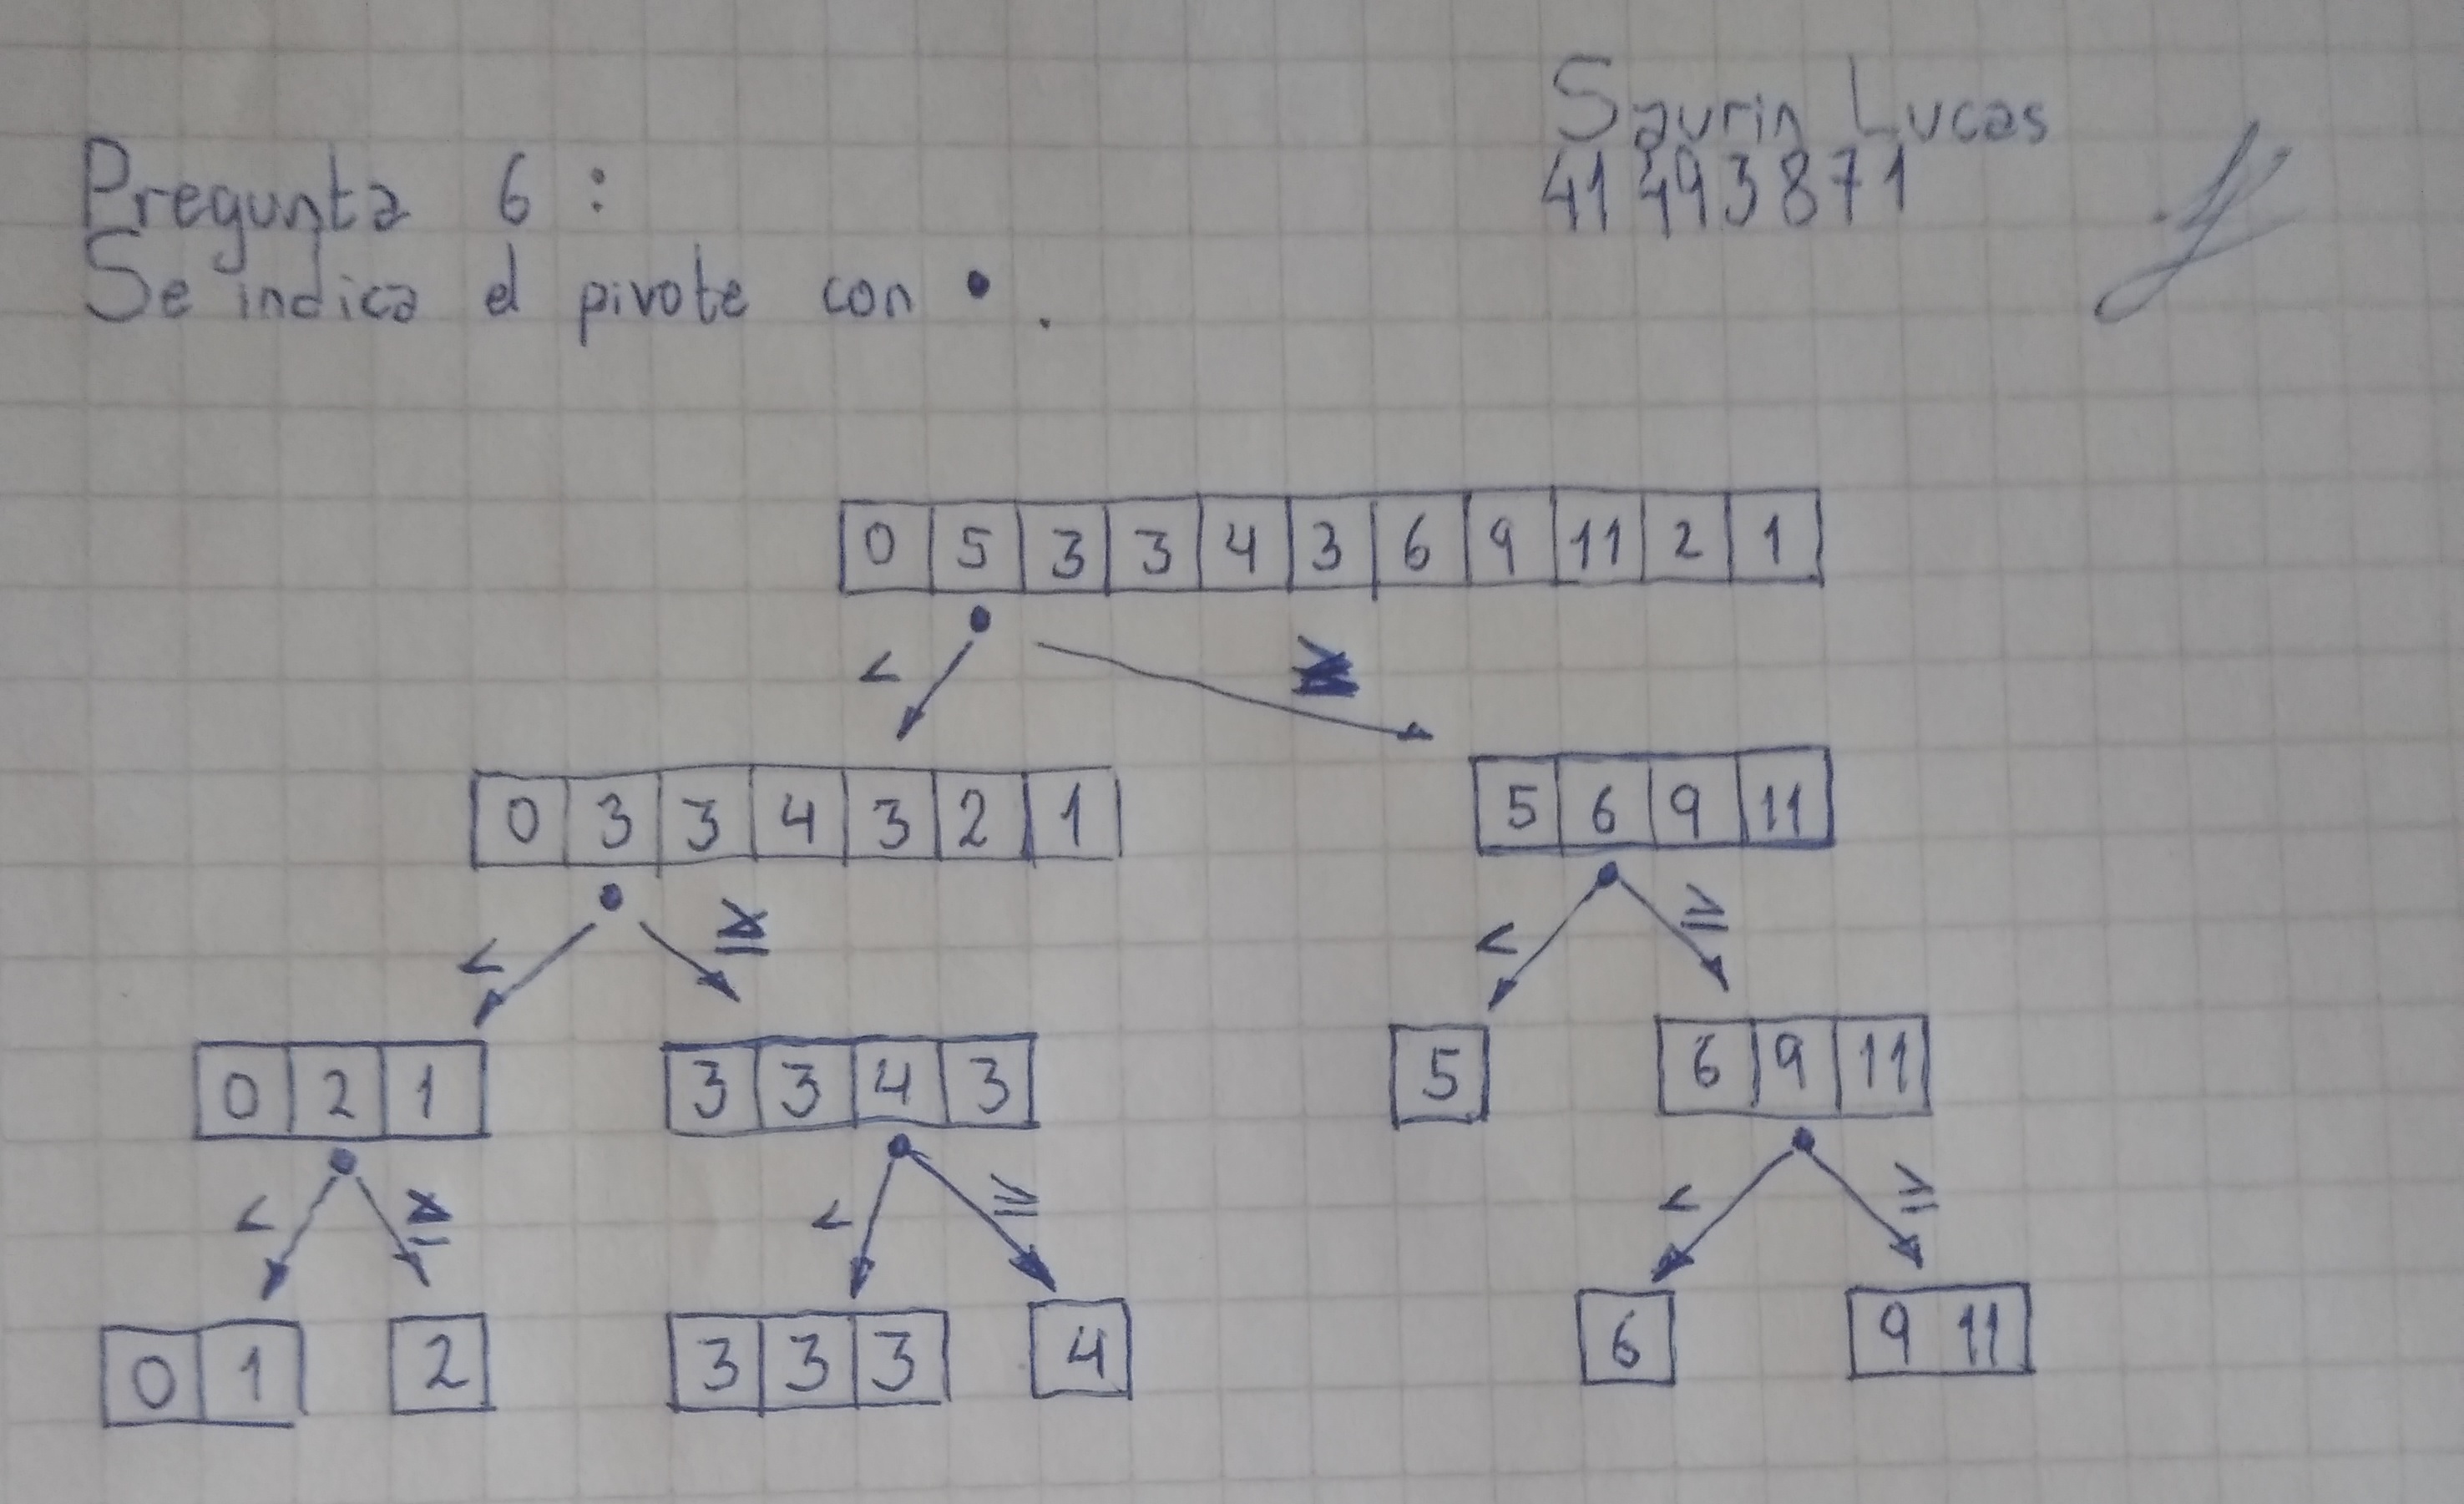 Saurin Lucas
41 493871
Pregunta 6 :
Se indica el pivote con • .
0 5 3 3 4 3 6 9 11 2 1
< ≥
0 3 3 4 3 2 1 5 6 9 11
< ≥ < ≥
0 2 1 3 3 4 3 5 6 9 11
< ≥ < ≥ < ≥
0 1 2 3 3 3 4 6 9 11